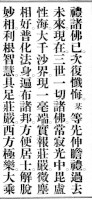 禮諸佛已次復懺悔某等先伸瞻禮過去
未來現在三世一切諸佛常寂光土毘盧
性海大千沙界現一毫端實報莊嚴微塵
相好普化法身遍布諸邦方便居士解脫
妙相利根智慧具足莊嚴西方極樂大乘